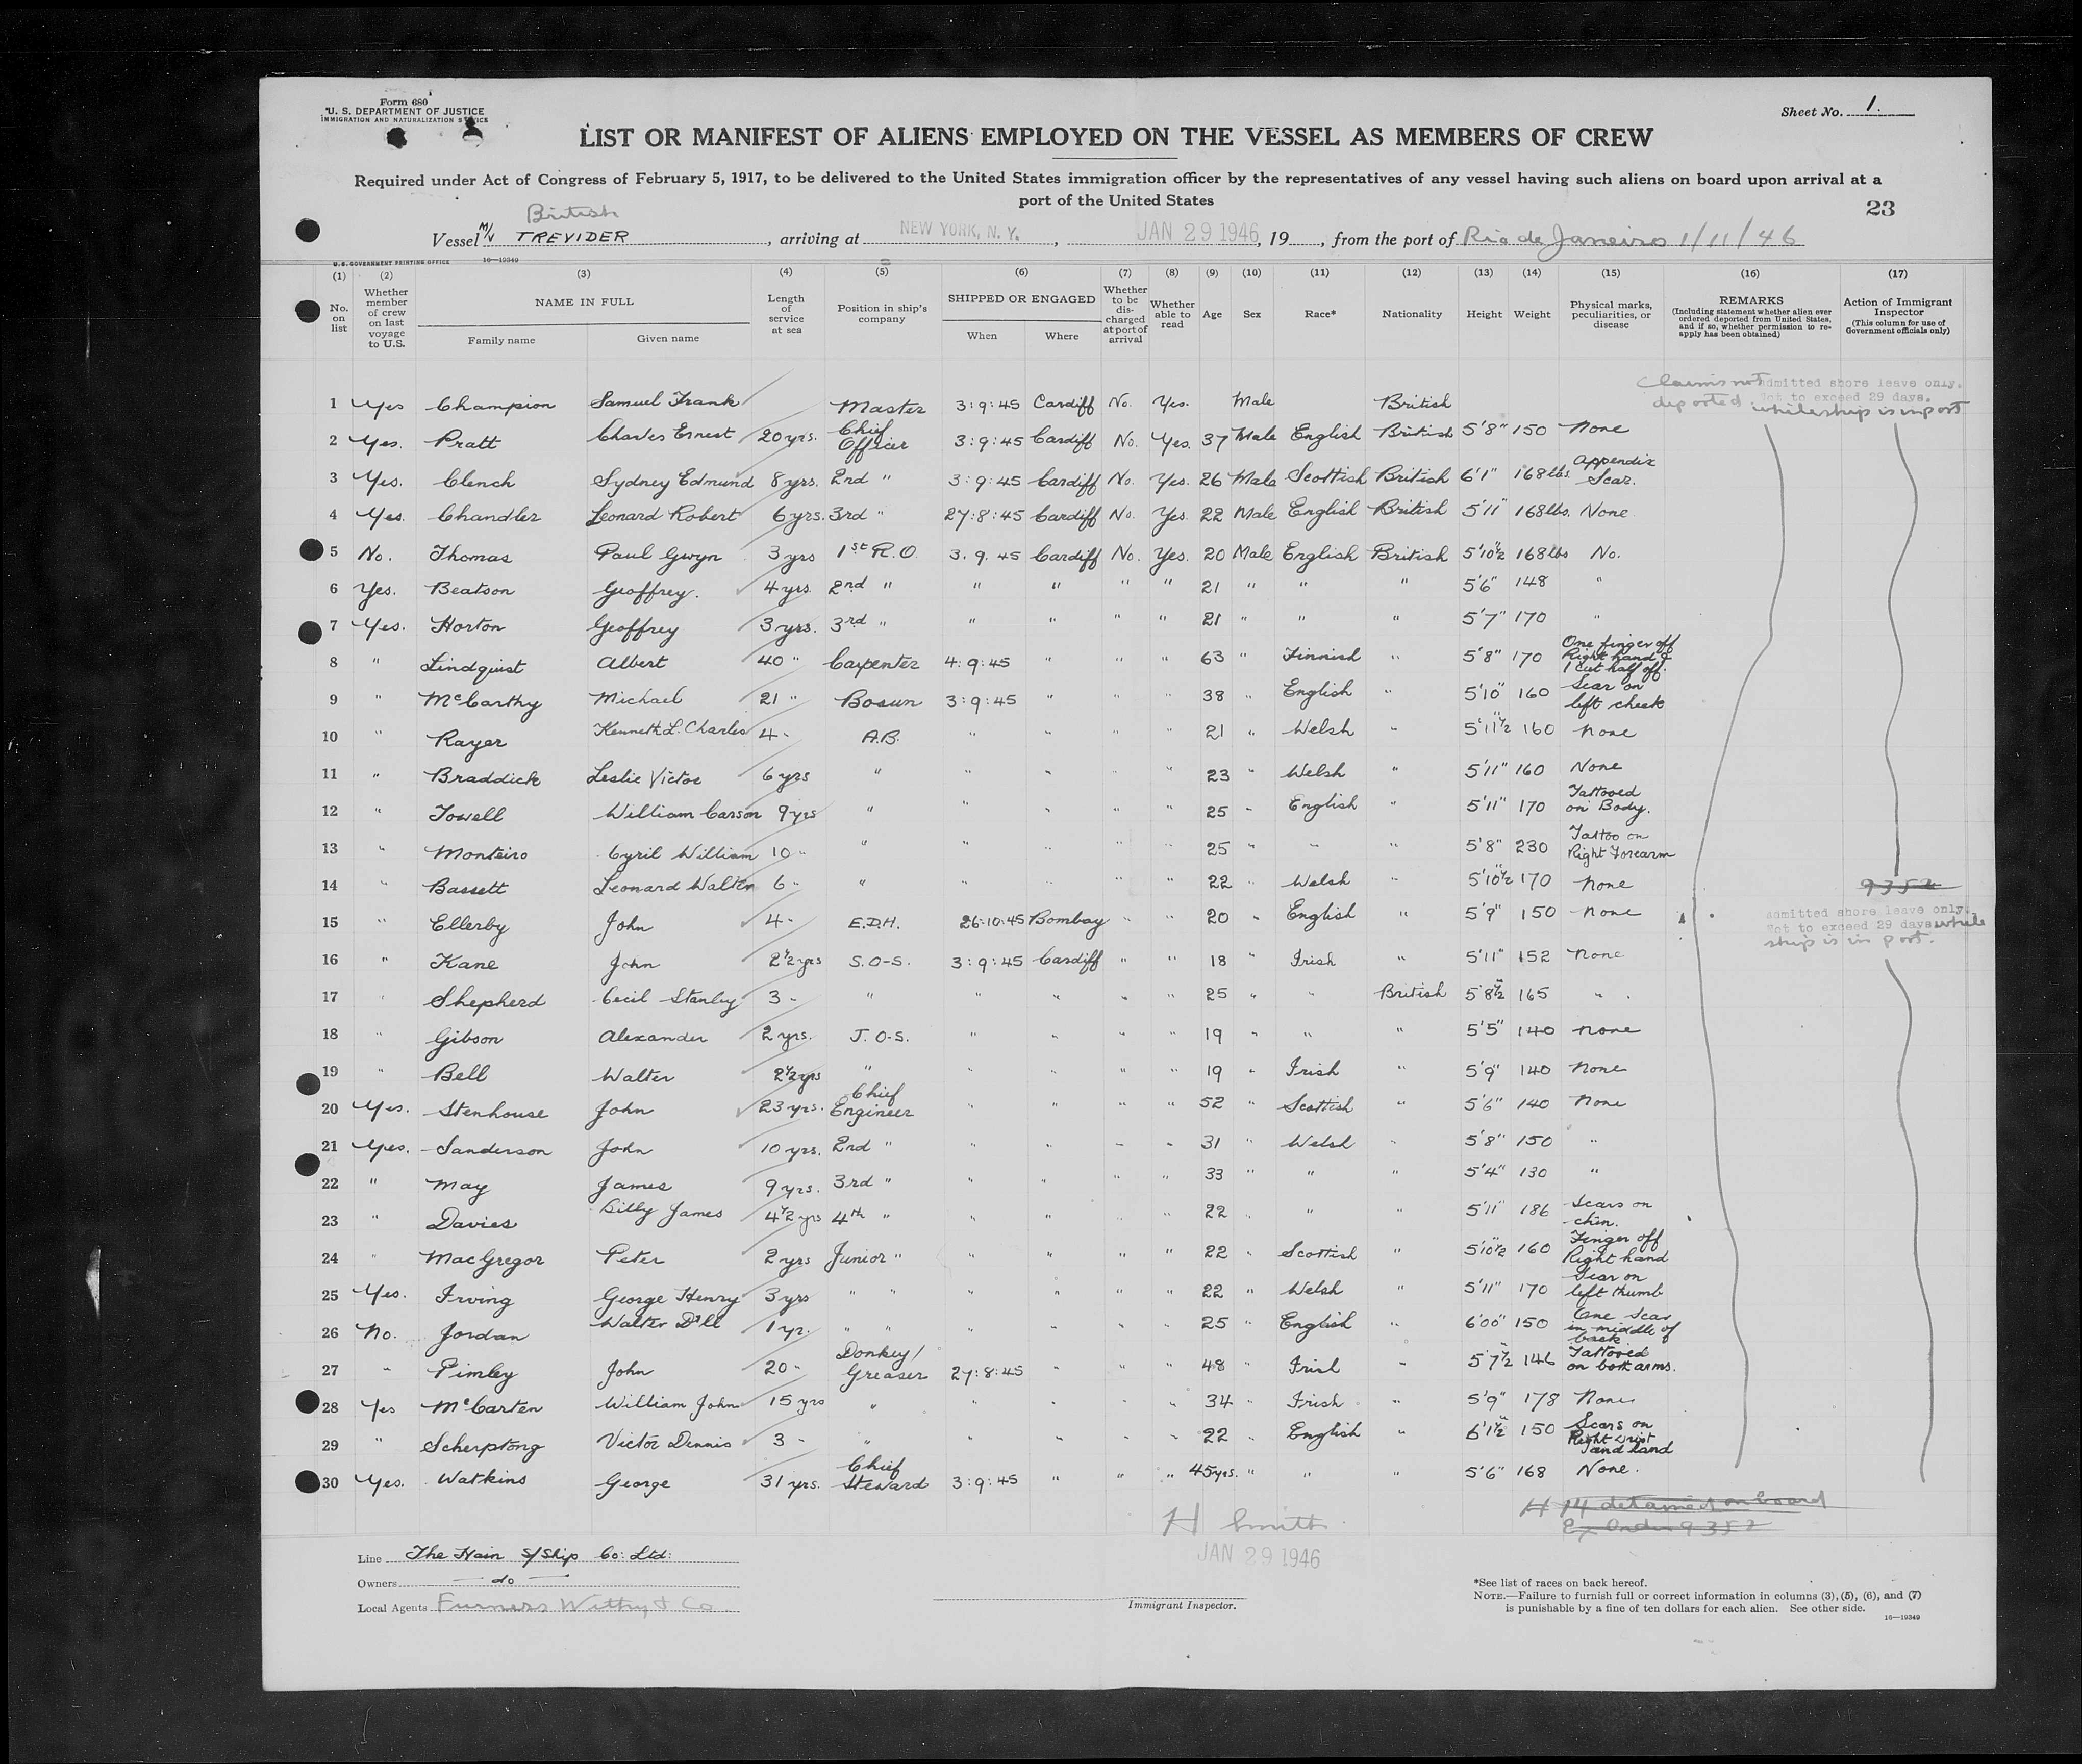 Form 680
U. S. DEPARTMENT OF JUSTICE
IMMIGRATION AND NATURALIZATION SERVICE
Sheet No. 1.
LIST OR MANIFEST OF ALIENS EMPLOYED ON THE VESSEL AS MEMBERS OF CREW
Required under Act of Congress of February 5, 1917, to be delivered to the United States immigration officer by the representatives of any vessel having such aliens on board upon arrival at a
port of the United States
23
British
Vessel M/V TREVIDER, arriving at NEW YORK, N. Y., JAN 29 1946, 19, from the port of Rio de Janeiro 1/11/46
U. S. GOVERNMENT PRINTING OFFICE 16—19349
(1) (2) (3) (4) (5) (6) (7) (8) (9) (10) (11) (12) (13) (14) (15) (16) (17)
No. on list | Whether member of crew on last voyage to U.S. | NAME IN FULL Family name Given name | Length of service at sea | Position in ship's company | SHIPPED OR ENGAGED When Where | Whether to be discharged at port of arrival | Whether able to read | Age | Sex | Race* | Nationality | Height | Weight | Physical marks, peculiarities, or disease | REMARKS (Including statement whether alien ever ordered deported from United States, and if so, whether permission to reapply has been obtained) | Action of Immigrant Inspector (This column for use of Government officials only)
Claims not deported admitted shore leave only. Not to exceed 29 days. while ship is in port
1 Yes Champion Samuel Frank Master 3:9:45 Cardiff No. Yes. Male British
2 Yes. Pratt Charles Ernest 20 yrs. Chief Officer 3:9:45 Cardiff No. Yes. 37 Male English British 5'8" 150 None
3 Yes. Clench Sydney Edmund 8 yrs. 2nd " 3:9:45 Cardiff No. Yes. 26 Male Scottish British 6'1" 168 lbs. Appendix Scar.
4 Yes. Chandler Leonard Robert 6 yrs. 3rd " 27:8:45 Cardiff No. Yes. 22 Male English British 5'11" 168 lbs. None
5 No. Thomas Paul Gwyn 3 yrs 1st R.O. 3.9.45 Cardiff No. Yes. 20 Male English British 5'10½ 168 lbs No.
6 Yes. Beatson Geoffrey. 4 yrs 2nd " " " " " 21 " " " 5'6" 148 "
7 Yes. Horton Geoffrey 3 yrs. 3rd " " " " " 21 " " " 5'7" 170 "
8 " Lindquist Albert 40 " Carpenter 4:9:45 " " " 63 " Finnish " 5'8" 170 One finger off Right hand & 1 cut half off.
9 " McCarthy Michael 21 " Bosun 3:9:45 " " " 38 " English " 5'10" 160 Scar on left cheek
10 " Rayer Kenneth L. Charles 4 " A.B. " " " " 21 " Welsh " 5'11½" 160 None
11 " Braddick Leslie Victor 6 yrs " " " " " 23 " Welsh " 5'11" 160 None
12 " Towell William Carson 9 yrs " " " " " 25 " English " 5'11" 170 Tattooed on Body.
13 " Monteiro Cyril William 10 " " " " " " 25 " " " 5'8" 230 Tattoo on Right Forearm
14 " Bassett Leonard Walter 6 " " " " " " 22 " Welsh " 5'10½" 170 None 9352
15 " Ellerby John 4 " E.D.H. 26:10:45 Bombay " " 20 " English " 5'9" 150 None admitted shore leave only. Not to exceed 29 days while ship is in port.
16 " Kane John 2½ yrs S.O-S. 3:9:45 Cardiff " " 18 " Irish " 5'11" 152 None
17 " Shepherd Cecil Stanley 3 " " " " " " 25 " " British 5'8½" 165 "
18 " Gibson Alexander 2 yrs. J.O-S. " " " " 19 " " " 5'5" 140 None
19 " Bell Walter 2½ yrs " " " " " 19 " Irish " 5'9" 140 None
20 Yes. Stenhouse John 23 yrs. Chief Engineer " " " " 52 " Scottish " 5'6" 140 None
21 Yes. Sanderson John 10 yrs. 2nd " " " " " 31 " Welsh " 5'8" 150 "
22 " May James 9 yrs. 3rd " " " " " 33 " " " 5'4" 130 "
23 " Davies Billy James 4½ yrs 4th " " " " " 22 " " " 5'11" 186 Scars on chin.
24 " MacGregor Peter 2 yrs Junior " " " " " 22 " Scottish " 5'10½" 160 Finger off Right hand
25 Yes. Irving George Henry 3 yrs " " " " " " 22 " Welsh " 5'11" 170 Scar on left thumb
26 No. Jordan Walter 1 yr. " " " " " " 25 " English " 6'00" 150 One Scar in middle of back.
27 " Pimley John 20 " Donkey/ Greaser 27:8:45 " " " 48 " Irish " 5'7½" 146 Tattooed on both arms.
28 Yes McCarten William John 15 yrs " " " " " 34 " Irish " 5'9" 178 None
29 " Scherptong Victor Dennis 3 " " " " " " 22 " English " 6'1½" 150 Scars on Right wrist and hand
30 Yes. Watkins George 31 yrs. Chief Steward 3:9:45 " " " 45 yrs. " " " 5'6" 168 None.
H Smith
JAN 29 1946
# 14 detained on board
Ex Order 9352
Line The Hain S/Ship Co: Ltd:
Owners do
Local Agents Furness Withy & Co.
Immigrant Inspector.
*See list of races on back hereof.
NOTE.—Failure to furnish full or correct information in columns (3), (5), (6), and (7)
is punishable by a fine of ten dollars for each alien. See other side.
16—19349